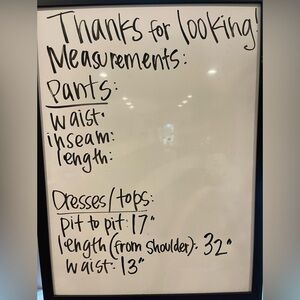 Thanks for looking!
Measurements:
Pants:
waist:
inseam:
length:
Dresses/tops:
pit to pit: 17"
length (from shoulder): 32"
waist: 13"